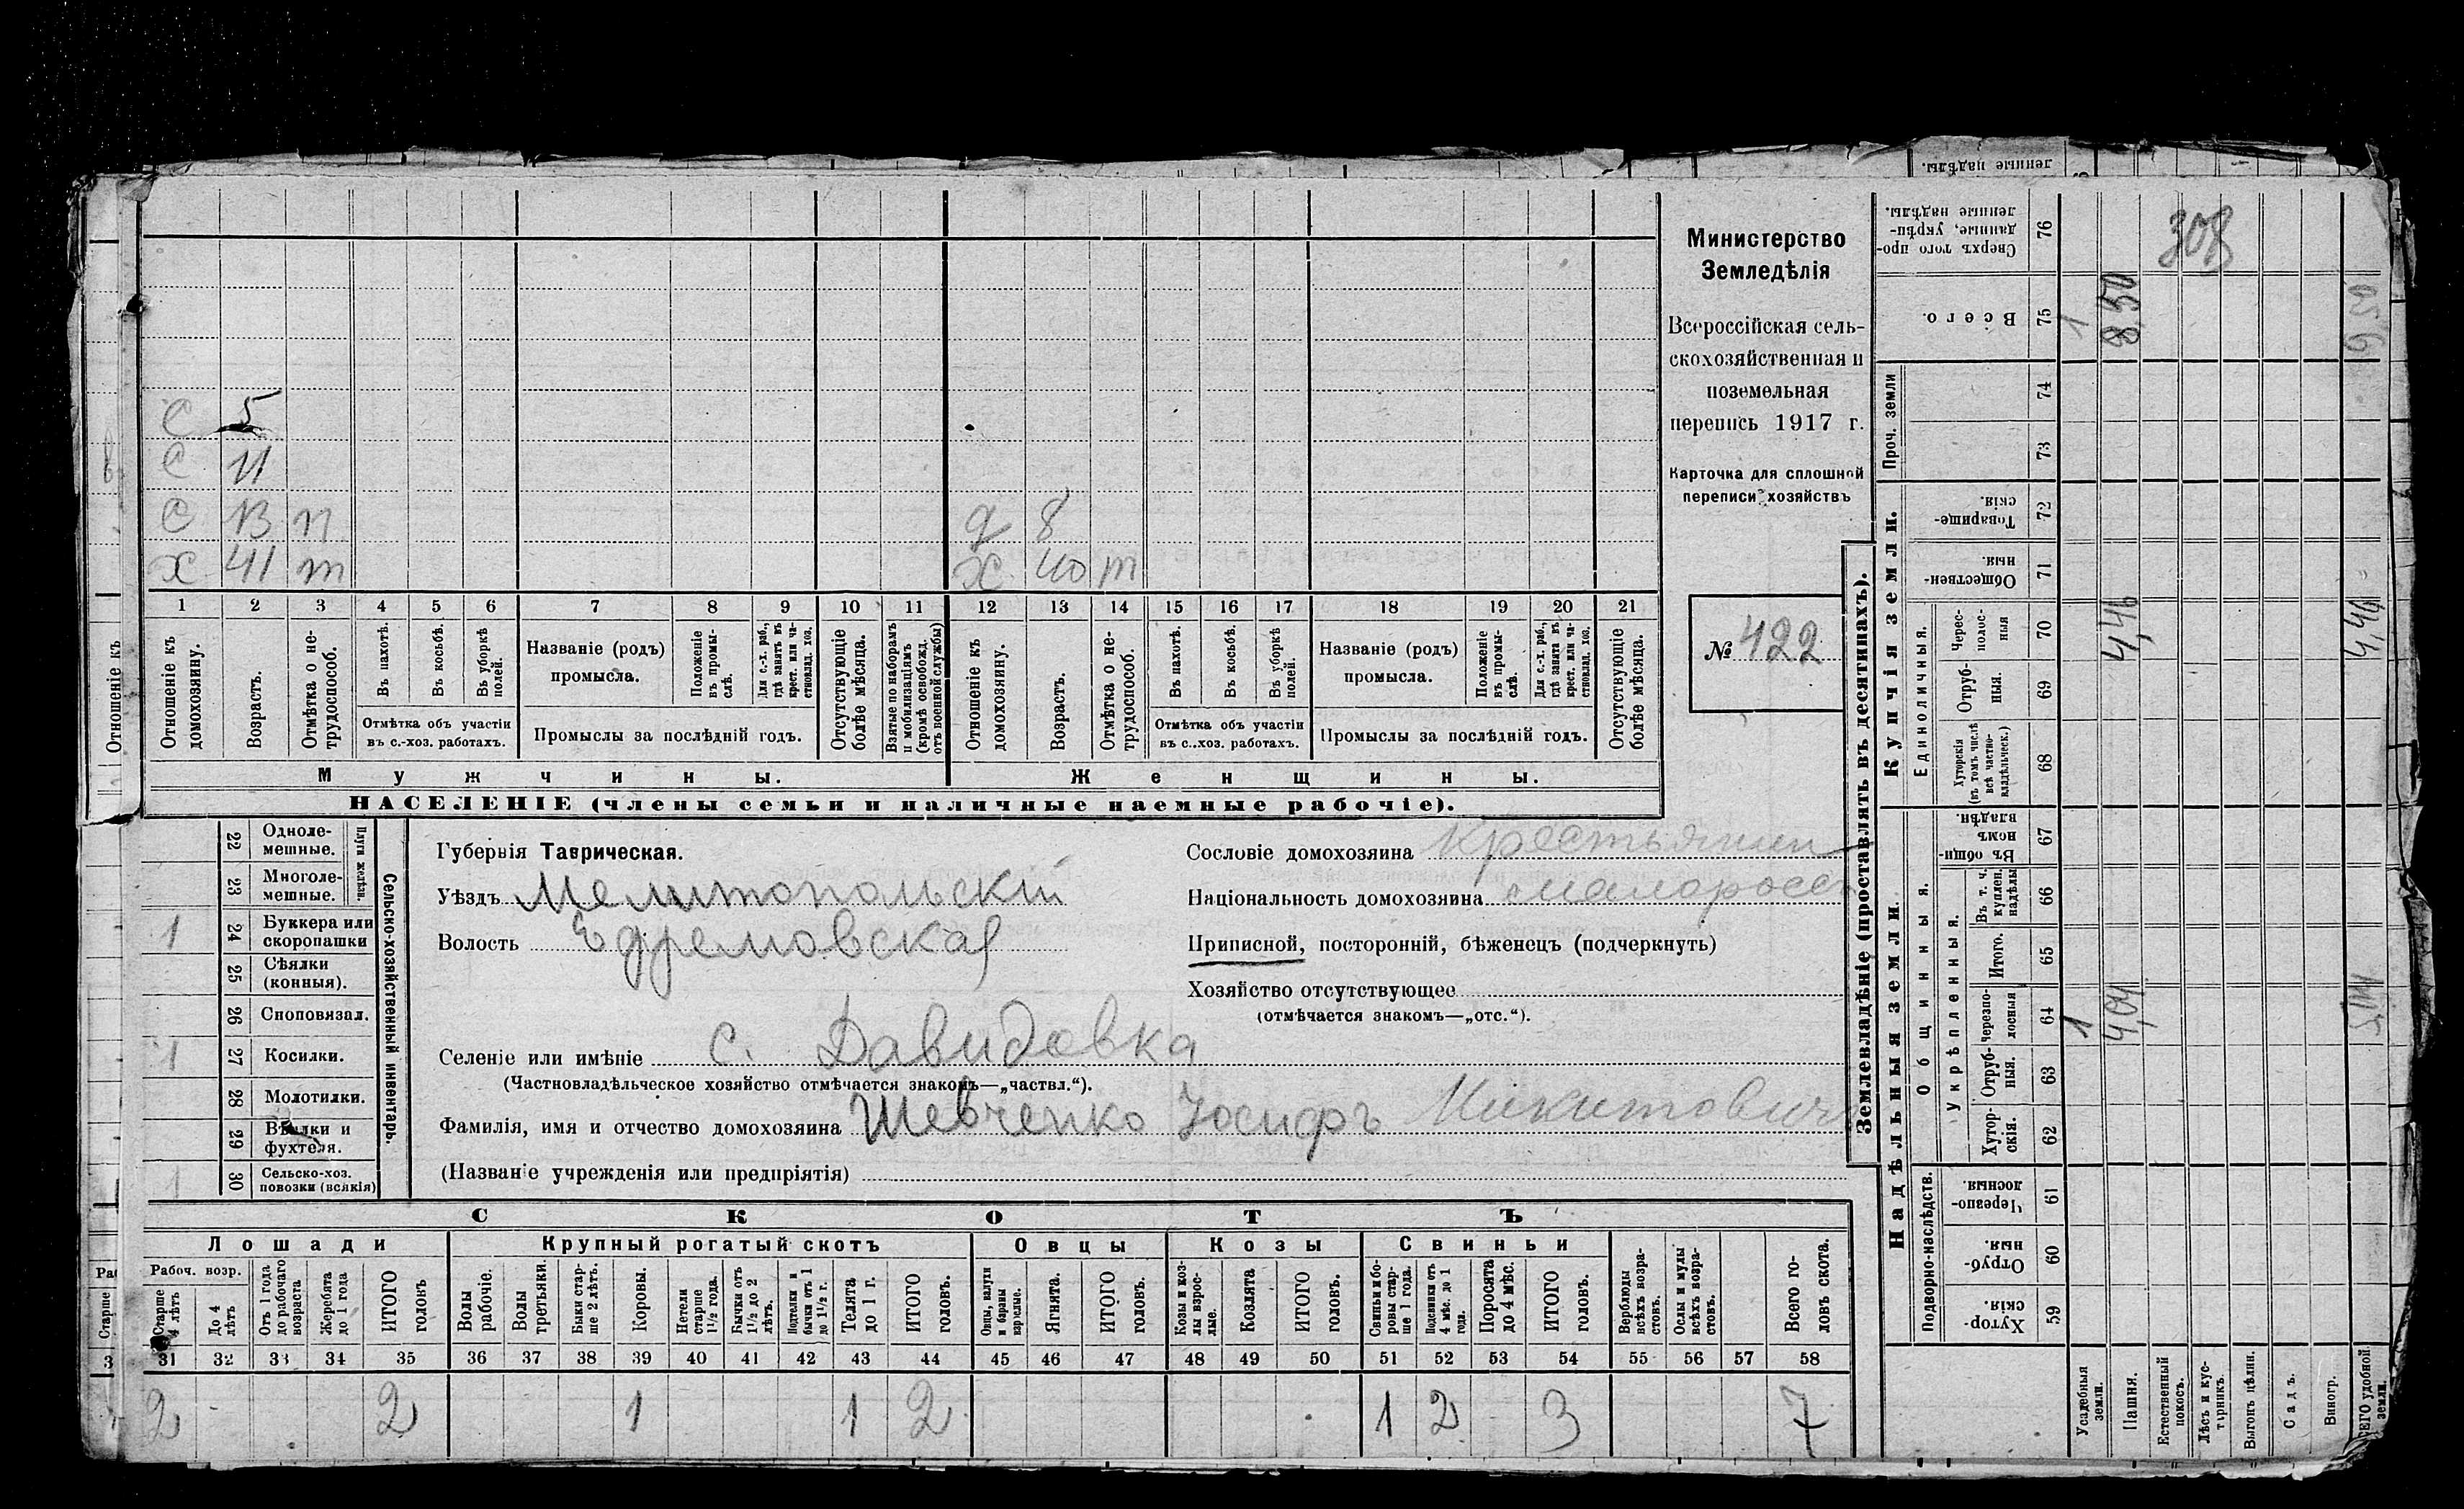 ленные надѣлы.
Министерство
Земледѣлія
Всероссійская сель-
скохозяйственная и
поземельная
перепись 1917 г.
Карточка для сплошной
переписи хозяйствъ
№ 422
С 5
С 11
С 13 п
Х 41 т
д 8
Х 40 т
1 2 3 4 5 6 7 8 9 10 11 12 13 14 15 16 17 18 19 20 21
Отношеніе къ
Отношеніе къ домохозяину.
Возрастъ.
Отмѣтка о не-трудоспособ.
Въ пахотѣ.
Въ косьбѣ.
Въ уборкѣ полей.
Отмѣтка объ участіи
въ с.-хоз. работахъ.
Названіе (родъ)
промысла.
Положеніе въ промы-слѣ.
Для с.-х. раб., гдѣ занятъ въ крест. или ча-стновлад. хоз.
Промыслы за послѣдній годъ.
Отсутствующіе болѣе мѣсяца.
Взятые по наборамъ и мобилизаціямъ (кромѣ освобожд. отъ военной службы)
Отношеніе къ домохозяину.
Возрастъ.
Отмѣтка о не-трудоспособ.
Въ пахотѣ.
Въ косьбѣ.
Въ уборкѣ полей.
Отмѣтка объ участіи
въ с.-хоз. работахъ.
Названіе (родъ)
промысла.
Положеніе въ промы-слѣ.
Для с.-х. раб., гдѣ занята въ крест. или ча-стновлад. хоз.
Промыслы за послѣдній годъ.
Отсутствующіе болѣе мѣсяца.
Мужчины.
Женщины.
НАСЕЛЕНІЕ (члены семьи и наличные наемные рабочіе).
Сельско-хозяйственный инвентарь.
Плуги желѣзн.
22 Одноле-мешные.
23 Многоле-мешные.
1 24 Буккера или скоропашки
25 Сѣялки (конныя).
26 Сноповязал.
1 27 Косилки.
28 Молотилки.
29 Вѣялки и фухтеля.
1 30 Сельско-хоз. повозки (всякія)
Губернія Таврическая.
Уѣздъ Мелитопольскій
Волость Ефремовская
Селеніе или имѣніе с. Давидовка
(Частновладѣльческое хозяйство отмѣчается знакомъ—„частвл.“).
Фамилія, имя и отчество домохозяина Шевченко Іосифъ Никитович
(Названіе учрежденія или предпріятія)
Сословіе домохозяина Крестьянин
Національность домохозяина малоросс
Приписной, посторонній, бѣженец (подчеркнуть)
Хозяйство отсутствующее
(отмѣчается знакомъ—„отс.“).
СКОТЪ
Лошади
Крупный рогатый скотъ
Овцы
Козы
Свиньи
Рабоч. возр.
Старше 4 лѣтъ
До 4 лѣтъ
Отъ 1 года до рабочаго возраста
Жеребята до 1 года
ИТОГО головъ
Волы рабочіе.
Волы третьяки.
Быки стар-ше 2 лѣтъ.
Коровы.
Нетели старше 1½ года.
Бычки отъ 1½ до 2 лѣтъ.
Подтелки и бычки отъ 1 до 1½ г.
Телята до 1 г.
ИТОГО головъ.
Овцы, валухи и бараны взрослые.
Ягнята.
ИТОГО головъ.
Козы и коз-лы взрос-лые.
Козлята
ИТОГО головъ.
Свиньи и бо-ровы стар-ше 1 года.
Подсвинки отъ 4 мѣс. до 1 года.
Поросята до 4 мѣс.
ИТОГО головъ.
Верблюды всѣхъ возра-стовъ.
Ослы и мулы всѣхъ возра-стовъ.
Всего го-ловъ скота.
31 32 33 34 35 36 37 38 39 40 41 42 43 44 45 46 47 48 49 50 51 52 53 54 55 56 57 58
2 2 1 1 2 1 2 3 7
Землевладѣніе (проставлять въ десятинахъ).
Надѣльныя земли.
Купчія земли.
Проч. земли
Подворно-наслѣдств.
Общинныя.
Укрѣпленныя.
Единоличныя.
76 Сверхъ того про-данные, укрѣп-ленные надѣлы.
308
75 Всего.
1 8,50 9,50
74
73
72 Товарище-скія.
71 Обществен-ныя.
70 Черес-полос-ныя
4,46 4,46
69 Отруб-ныя.
68 Хуторскія (въ томъ числѣ всѣ частно-владѣльческ.)
67 Въ общи-номъ владѣн.
66 Въ т. ч. куплен. надѣлы
65 Итого.
64 Черезпо-лосныя
1 4,04 5,04
63 Отруб-ныя.
62 Хутор-скія.
61 Черезпо-лосныя
60 Отруб-ныя
59 Хутор-скія
Усадебныя земли.
Пашня.
Естественный покосъ.
Лѣсъ и кус-тарникъ.
Выгонъ цѣлин.
Садъ.
Виногр.
ВСЕГО удобной земли.